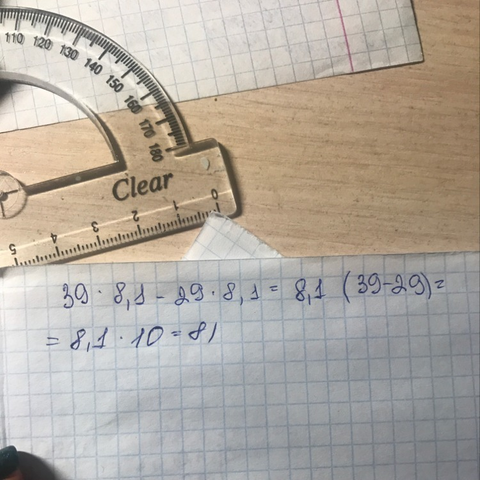 110 120 130 140 150 160 170 180
Clear
5 4 3 2 1 0
39 · 8,1 - 29 · 8,1 = 8,1 (39-29) =
= 8,1 · 10 = 81